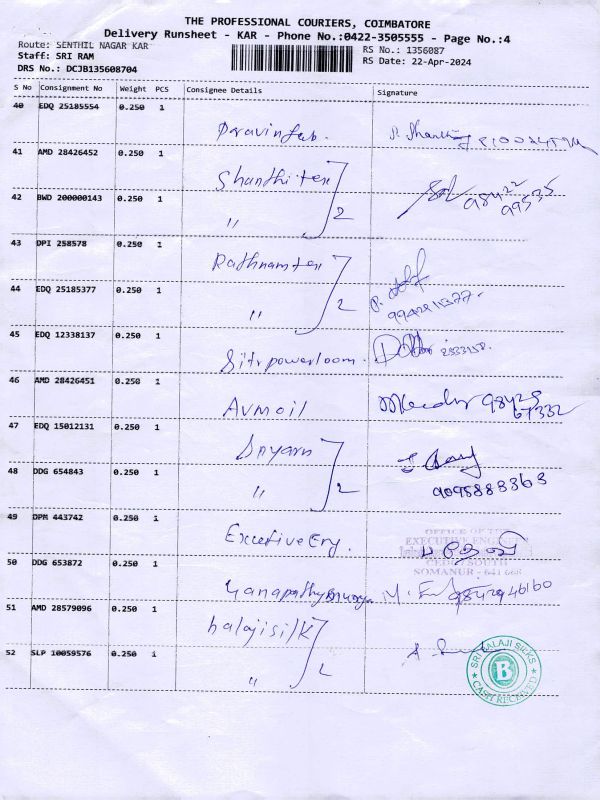 THE PROFESSIONAL COURIERS, COIMBATORE
Delivery Runsheet - KAR - Phone No.:0422-3505555 - Page No.:4
Route: SENTHIL NAGAR KAR
RS No.: 1356087
Staff: SRI RAM
RS Date: 22-Apr-2024
DRS No.: DCJB135608704
S No Consignment No Weight PCS Consignee Details Signature
40 EDQ 25185554 0.250 1
41 AMD 28426452 0.250 1
Shanthi tex
42 BWD 200000143 0.250 1
" 2
98422
99535
43 DPI 258578 0.250 1
Rathnam tex
44 EDQ 25185377 0.250 1
" 2
45 EDQ 12338137 0.250 1
Sitrpowerloom.
46 AMD 28426451 0.250 1
AVMoil 98429
67332
47 EDQ 15012131 0.250 1
48 DDG 654843 0.250 1
" 2
9095883363
49 DPM 443742 0.250 1
OFFICE OF THE
EXECUTIVE ENGINEER
50 DDG 653872 0.250 1
SOMANUR - 641 668
9842946160
51 AMD 28579096 0.250 1
balajisilk
52 SLP 10059576 0.250 1
" 2
SRI BALAJI SILKS
B
CASH RECEIVED